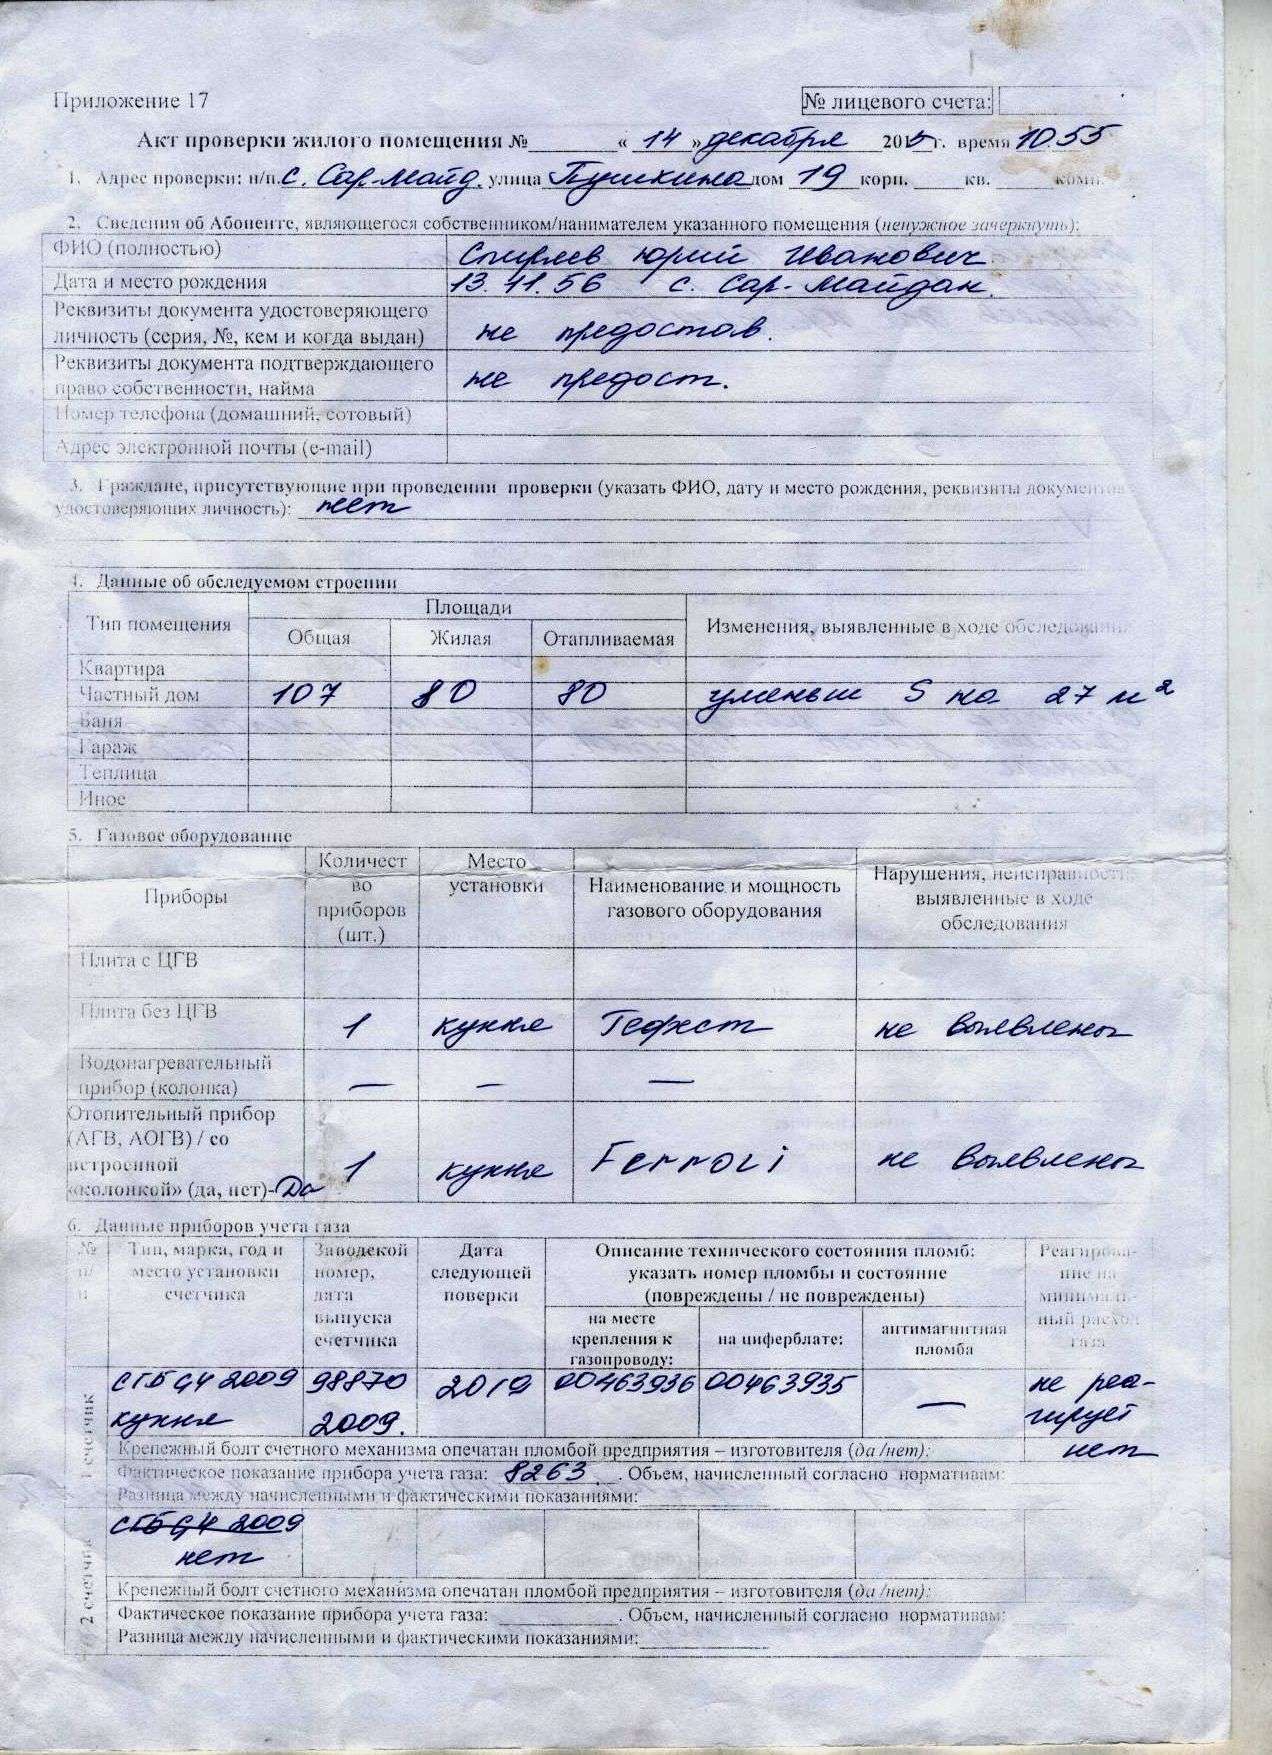 Приложение 17
№ лицевого счета:
Акт проверки жилого помещения № « 14 » декабря 2015 г. время 10 55
1. Адрес проверки: н/п. с. Сар.-Майд. улица Пушкина дом 19 корп. кв. комн.
2. Сведения об Абоненте, являющегося собственником/нанимателем указанного помещения (ненужное зачеркнуть):
ФИО (полностью) Юрий Иванович
Дата и место рождения 13.11.56 с. Сар.-Майдан.
Реквизиты документа удостоверяющего
личность (серия, №, кем и когда выдан) не предостав.
Реквизиты документа подтверждающего
право собственности, найма не предост.
Номер телефона (домашний, сотовый)
Адрес электронной почты (e-mail)
3. Граждане, присутствующие при проведении проверки (указать ФИО, дату и место рождения, реквизиты документов
удостоверяющих личность): нет
4. Данные об обследуемом строении
Тип помещения Площади Изменения, выявленные в ходе обследования
Общая Жилая Отапливаемая
Квартира
Частный дом 107 80 80 уменьш S на 27 м²
Баня
Гараж
Теплица
Иное
5. Газовое оборудование
Приборы
Количест
во
приборов
(шт.)
Место
установки
Наименование и мощность
газового оборудования
Нарушения, неисправности,
выявленные в ходе
обследования
Плита с ЦГВ
Плита без ЦГВ 1 кухня Гефест не выявлены
Водонагревательный
прибор (колонка) — — —
Отопительный прибор
(АГВ, АОГВ) / со
встроенной
«колонкой» (да, нет)- Да 1 кухня Ferroli не выявлены
6. Данные приборов учета газа
№
п/
п
Тип, марка, год и
место установки
счетчика
Заводской
номер,
дата
выпуска
счетчика
Дата
следующей
поверки
Описание технического состояния пломб:
указать номер пломбы и состояние
(повреждены / не повреждены)
на месте
крепления к
газопроводу:
на циферблате:
антимагнитная
пломба
Реагирова-
ние на
минималь-
ный расход
газа
1 счетчик
СГБ G4 2009 98870 2019 00463936 00463935 — не реа-
кухня 2009. гирует
Крепежный болт счетного механизма опечатан пломбой предприятия – изготовителя (да /нет): нет
Фактическое показание прибора учета газа: 8263 . Объем, начисленный согласно нормативам:
Разница между начисленными и фактическими показаниями:
2 счетчик
СГБ G4 2009
нет
Крепежный болт счетного механизма опечатан пломбой предприятия – изготовителя (да /нет):
Фактическое показание прибора учета газа: . Объем, начисленный согласно нормативам:
Разница между начисленными и фактическими показаниями: